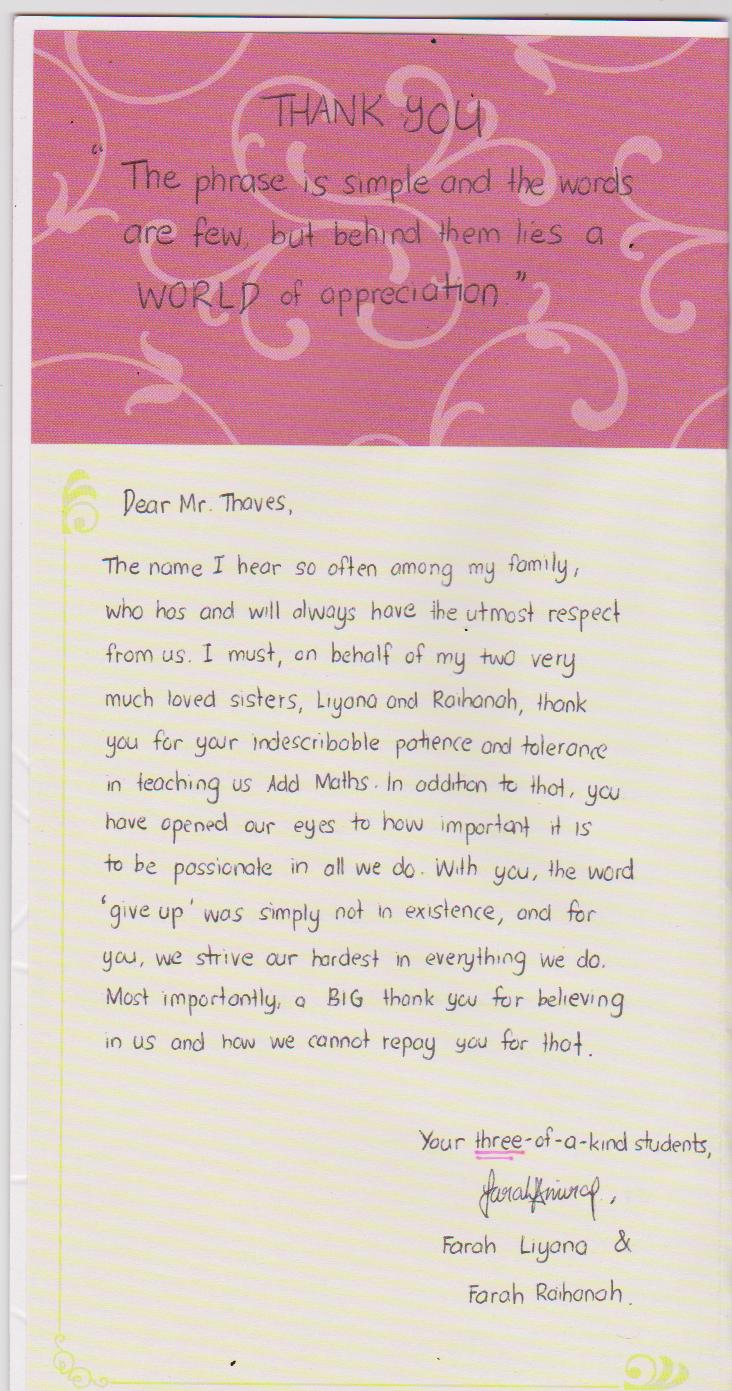 THANK YOU
"The phrase is simple and the words
are few, but behind them lies a
WORLD of appreciation."
Dear Mr. Thaves,
The name I hear so often among my family,
who has and will always have the utmost respect
from us. I must, on behalf of my two very
much loved sisters, Liyana and Raihanah, thank
you for your indescribable patience and tolerance
in teaching us Add Maths. In addition to that, you
have opened our eyes to how important it is
to be passionate in all we do. With you, the word
'give up' was simply not in existence, and for
you, we strive our hardest in everything we do.
Most importantly, a BIG thank you for believing
in us and how we cannot repay you for that.
Your three-of-a-kind students,
Farah Liyana &
Farah Raihanah.